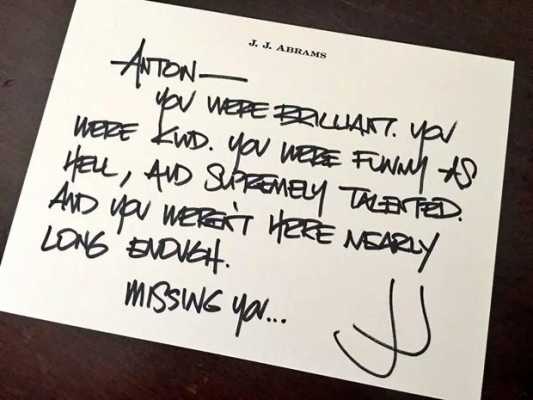 J. J. ABRAMS
ANTON—
YOU WERE BRILLIANT. YOU
WERE KIND. YOU WERE FUNNY AS
HELL, AND SUPREMELY TALENTED.
AND YOU WEREN'T HERE NEARLY
LONG ENOUGH.
MISSING YOU...
JJ